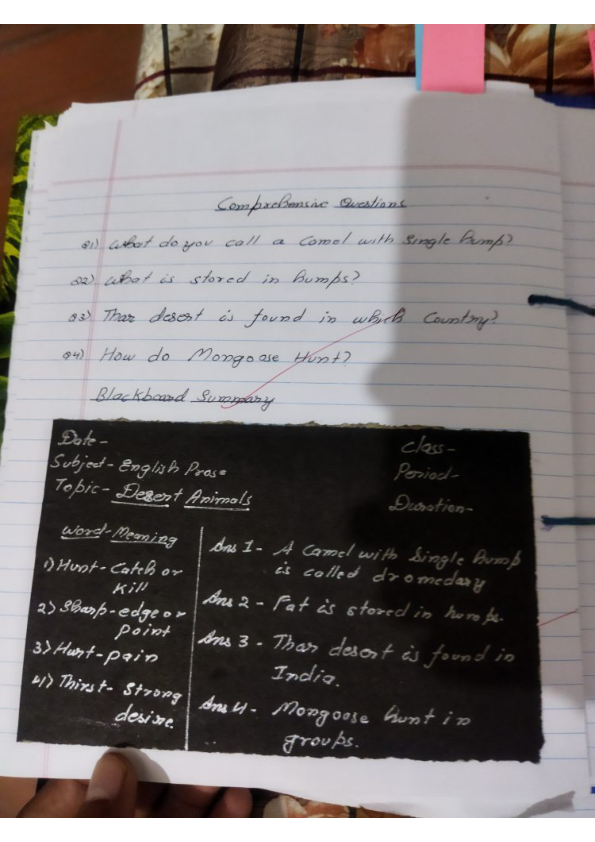 Comprehensive Questions
Q1) What do you call a Camel with Single hump?
Q2) What is stored in humps?
Q3) Thar desert is found in which Country?
Q4) How do Mongoose Hunt?
Blackboard Summary
Date-
Class-
Subject- English Prose
Period-
Topic- Desert Animals
Duration-
Word-Meaning
1) Hunt- Catch or
Kill
2) Sharp- edge or
point
3) Hurt- pain
4) Thirst- Strong
desire.
Ans 1 - A Camel with Single hump
is called dromedary
Ans 2 - Fat is stored in humps.
Ans 3 - Thar desert is found in
India.
Ans 4 - Mongoose hunt in
groups.